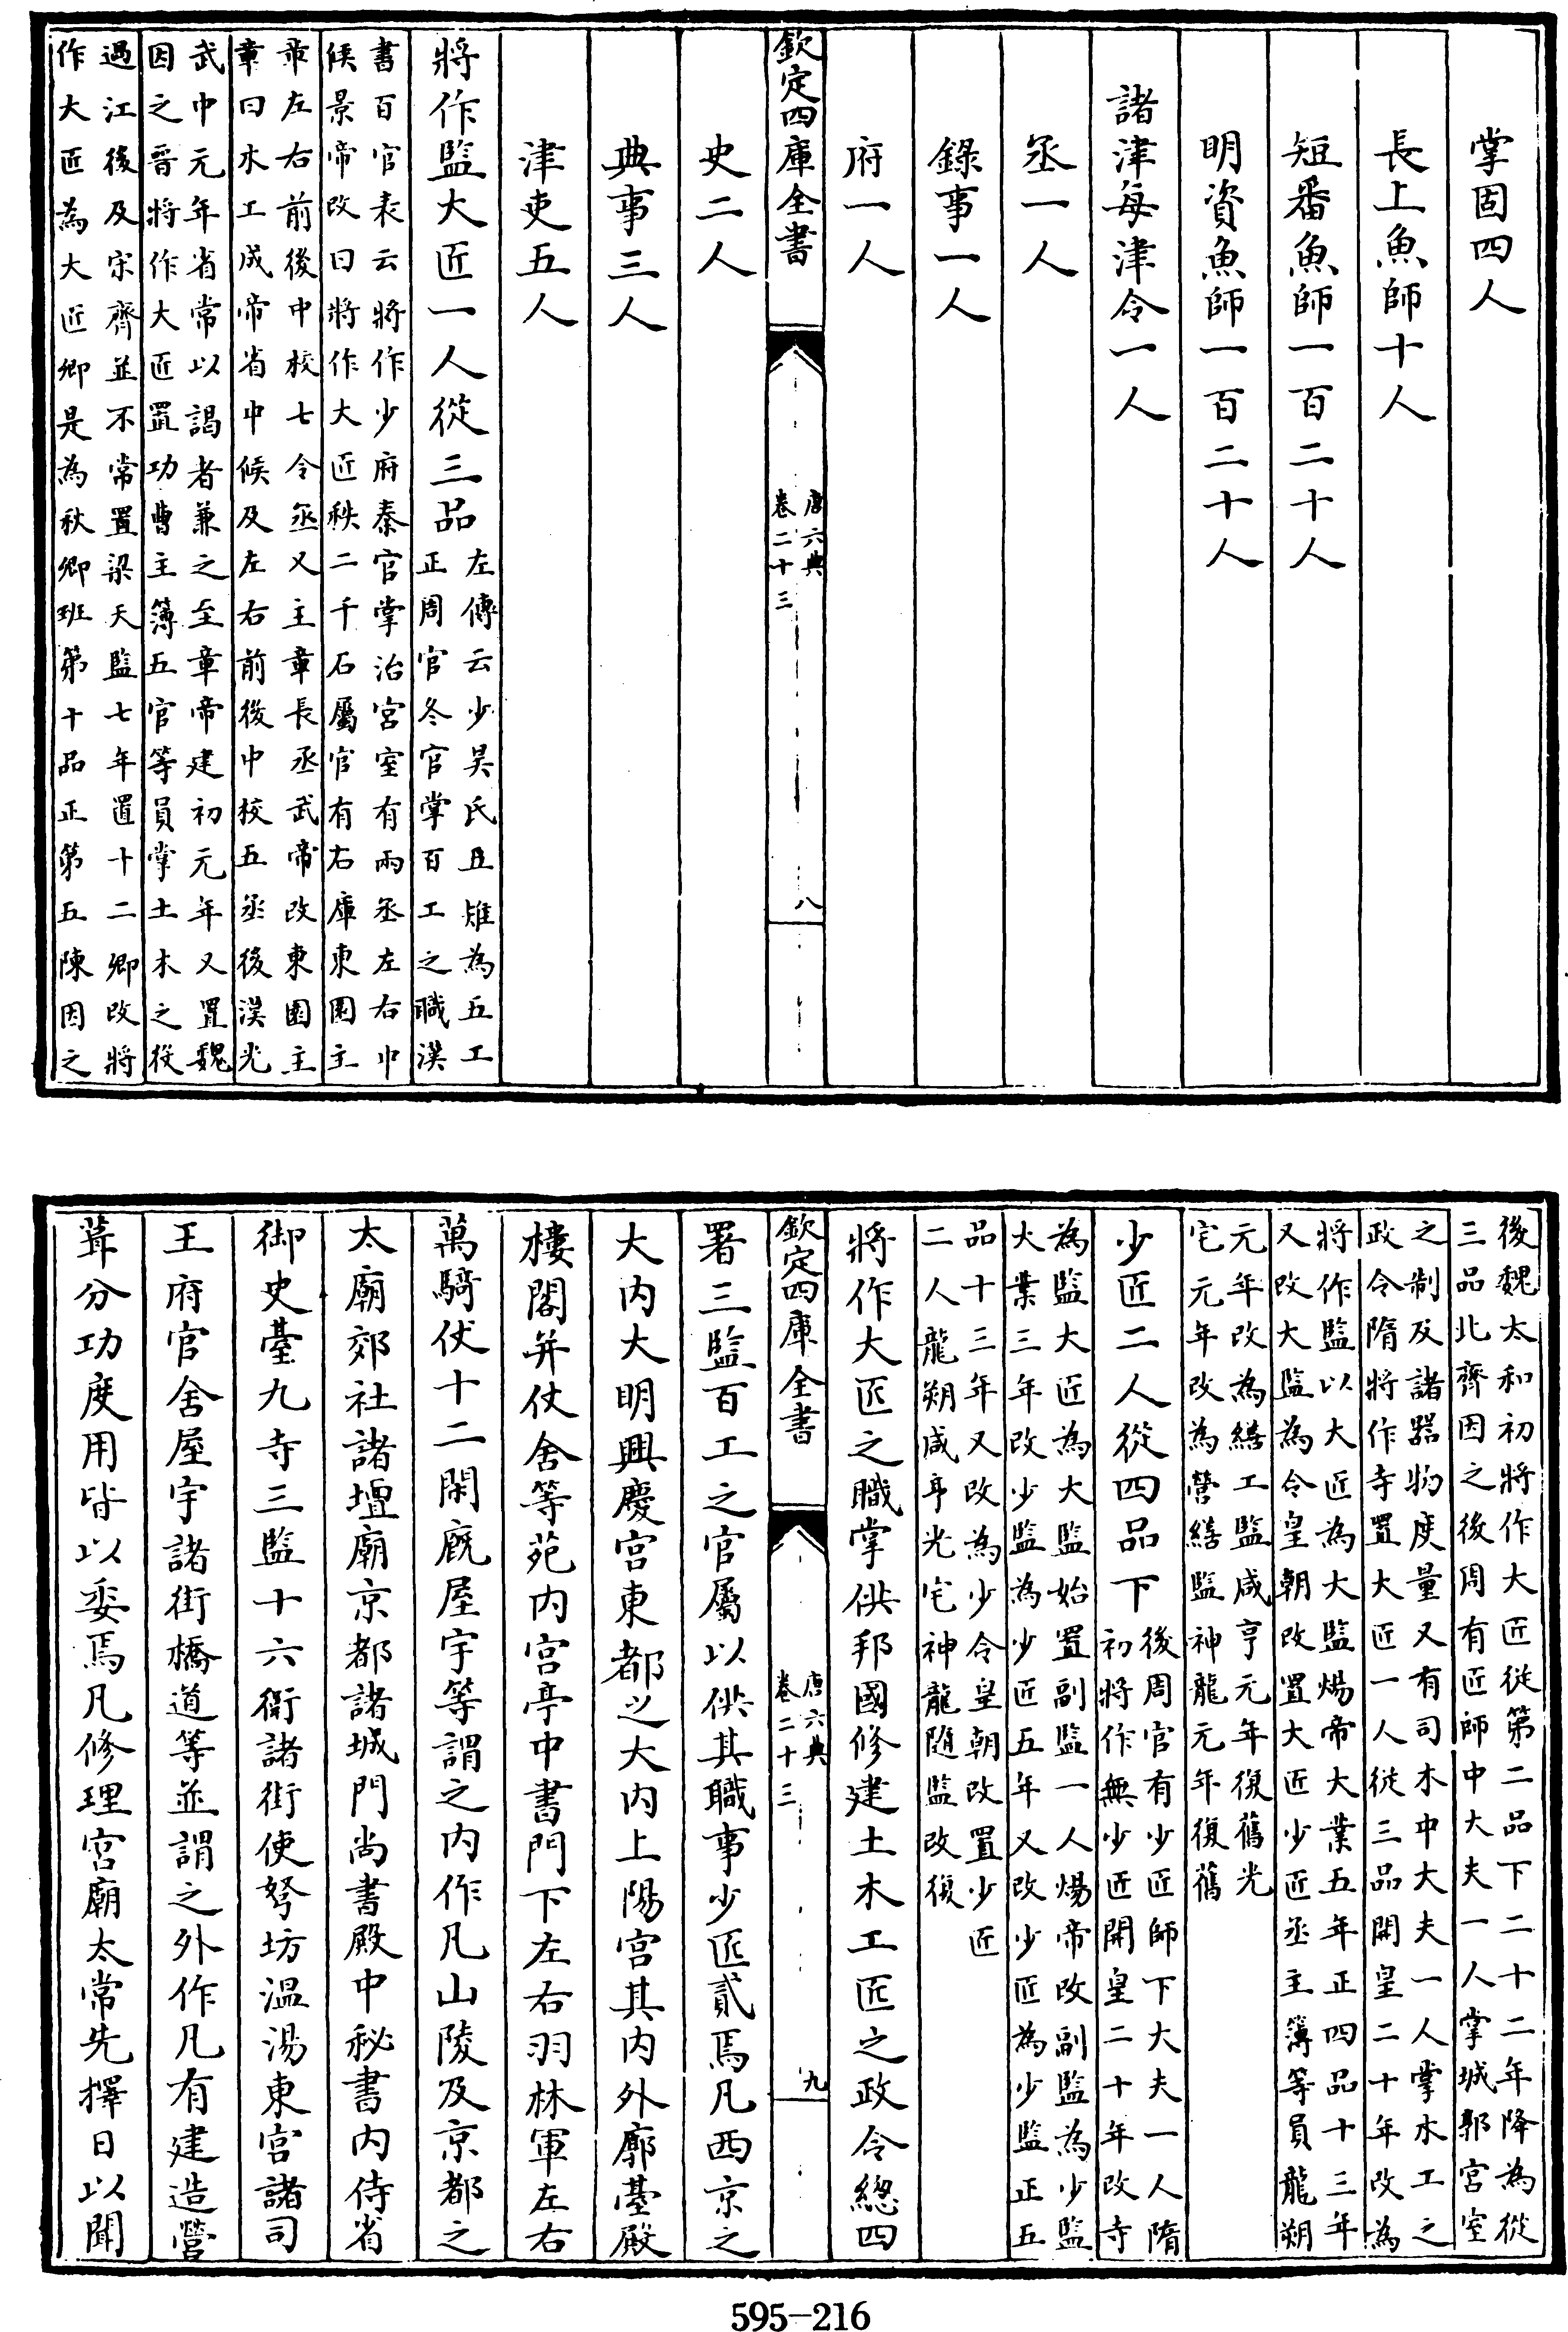 掌固四人
長上魚師十人
短番魚師一百二十人
明資魚師一百二十人
諸津每津令一人
丞一人
錄事一人
府一人
欽定四庫全書
唐六典
卷二十三
八
史二人
典事三人
津吏五人
將作監大匠一人從三品
左傳云少昊氏五雉為五工
正周官冬官掌百工之職漢
書百官表云將作少府秦官掌治宮室有兩丞左右中
候景帝改曰將作大匠秩二千石屬官有右庫東園主
章左右前後中校七令丞又主章長丞武帝改東園主
章曰木工成帝省中候及左右前後中校五丞後漢光
武中元年省常以謁者兼之至章帝建初元年又置魏
因之晉將作大匠置功曹主簿五官等員掌土木之役
過江後及宋齊並不常置梁天監七年置十二卿改將
作大匠為大匠卿是為秋卿班第十品正第五陳因之
後魏太和初將作大匠從第二品下二十二年降為從
三品北齊因之後周有匠師中大夫一人掌城郭宮室
之制及諸器物度量又有司木中大夫一人掌水工之
政令隋將作寺置大匠一人從三品開皇二十年改為
將作監以大匠為大監煬帝大業五年正四品十三年
又改大監為令皇朝改置大匠少匠丞主簿等員龍朔
元年改為繕工監咸亨元年復舊光
宅元年改為營繕監神龍元年復舊
少匠二人從四品下
後周官有少匠師下大夫一人隋
初將作無少匠開皇二十年改寺
為監大匠為大監始置副監一人煬帝改副監為少監
大業三年改少監為少匠五年又改少匠為少監正五
品十三年又改為少令皇朝改置少匠
二人龍朔咸亨光宅神龍隨監改復
將作大匠之職掌供邦國修建土木工匠之政令緫四
欽定四庫全書
唐六典
卷二十三
九
署三監百工之官屬以供其職事少匠貳焉凡西京之
大內大明興慶宮東都之大內上陽宮其內外廓臺殿
樓閣并仗舍等苑內宮亭中書門下左右羽林軍左右
萬騎仗十二閑廐屋宇等謂之內作凡山陵及京都之
太廟郊社諸壇廟京都諸城門尚書殿中秘書內侍省
御史臺九寺三監十六衛諸街使弩坊温湯東宮諸司
王府官舍屋宇諸街橋道等並謂之外作凡有建造營
葺分功度用皆以委焉凡修理宮廟太常先擇日以聞
595-216